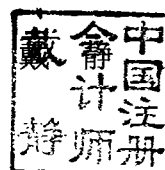 中国注册
会计师
戴静
戴静